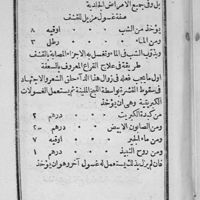 فى جميع الامراض الجلدية
صفة غسول مزيل للقشف
يؤخذ من الشب اوقية ٨
ومن الماء رطلى ٣
ويذوب الشب فى الماء وتغسل به الاجزاء المصابة بالقشف
طريقة فى علاج القراع المعروف بالسعفة
اول ما يجب فعله فى زوال هذا الداء حلق الشعر والاجتهاد
فى سقوط القشرة بواسطة اللبخ الملينة ثم يستعمل الغسولات
الكبريتية وهى ان يؤخذ
من كبدة الكبريت درهم ٢
ومن الصابون الابيض درهم
ومن ماء الجير اوقية ٧
ومن روح النبيذ درهم ١
فان لم يزل يستعمل له غسول آخر وهو ان يؤخذ